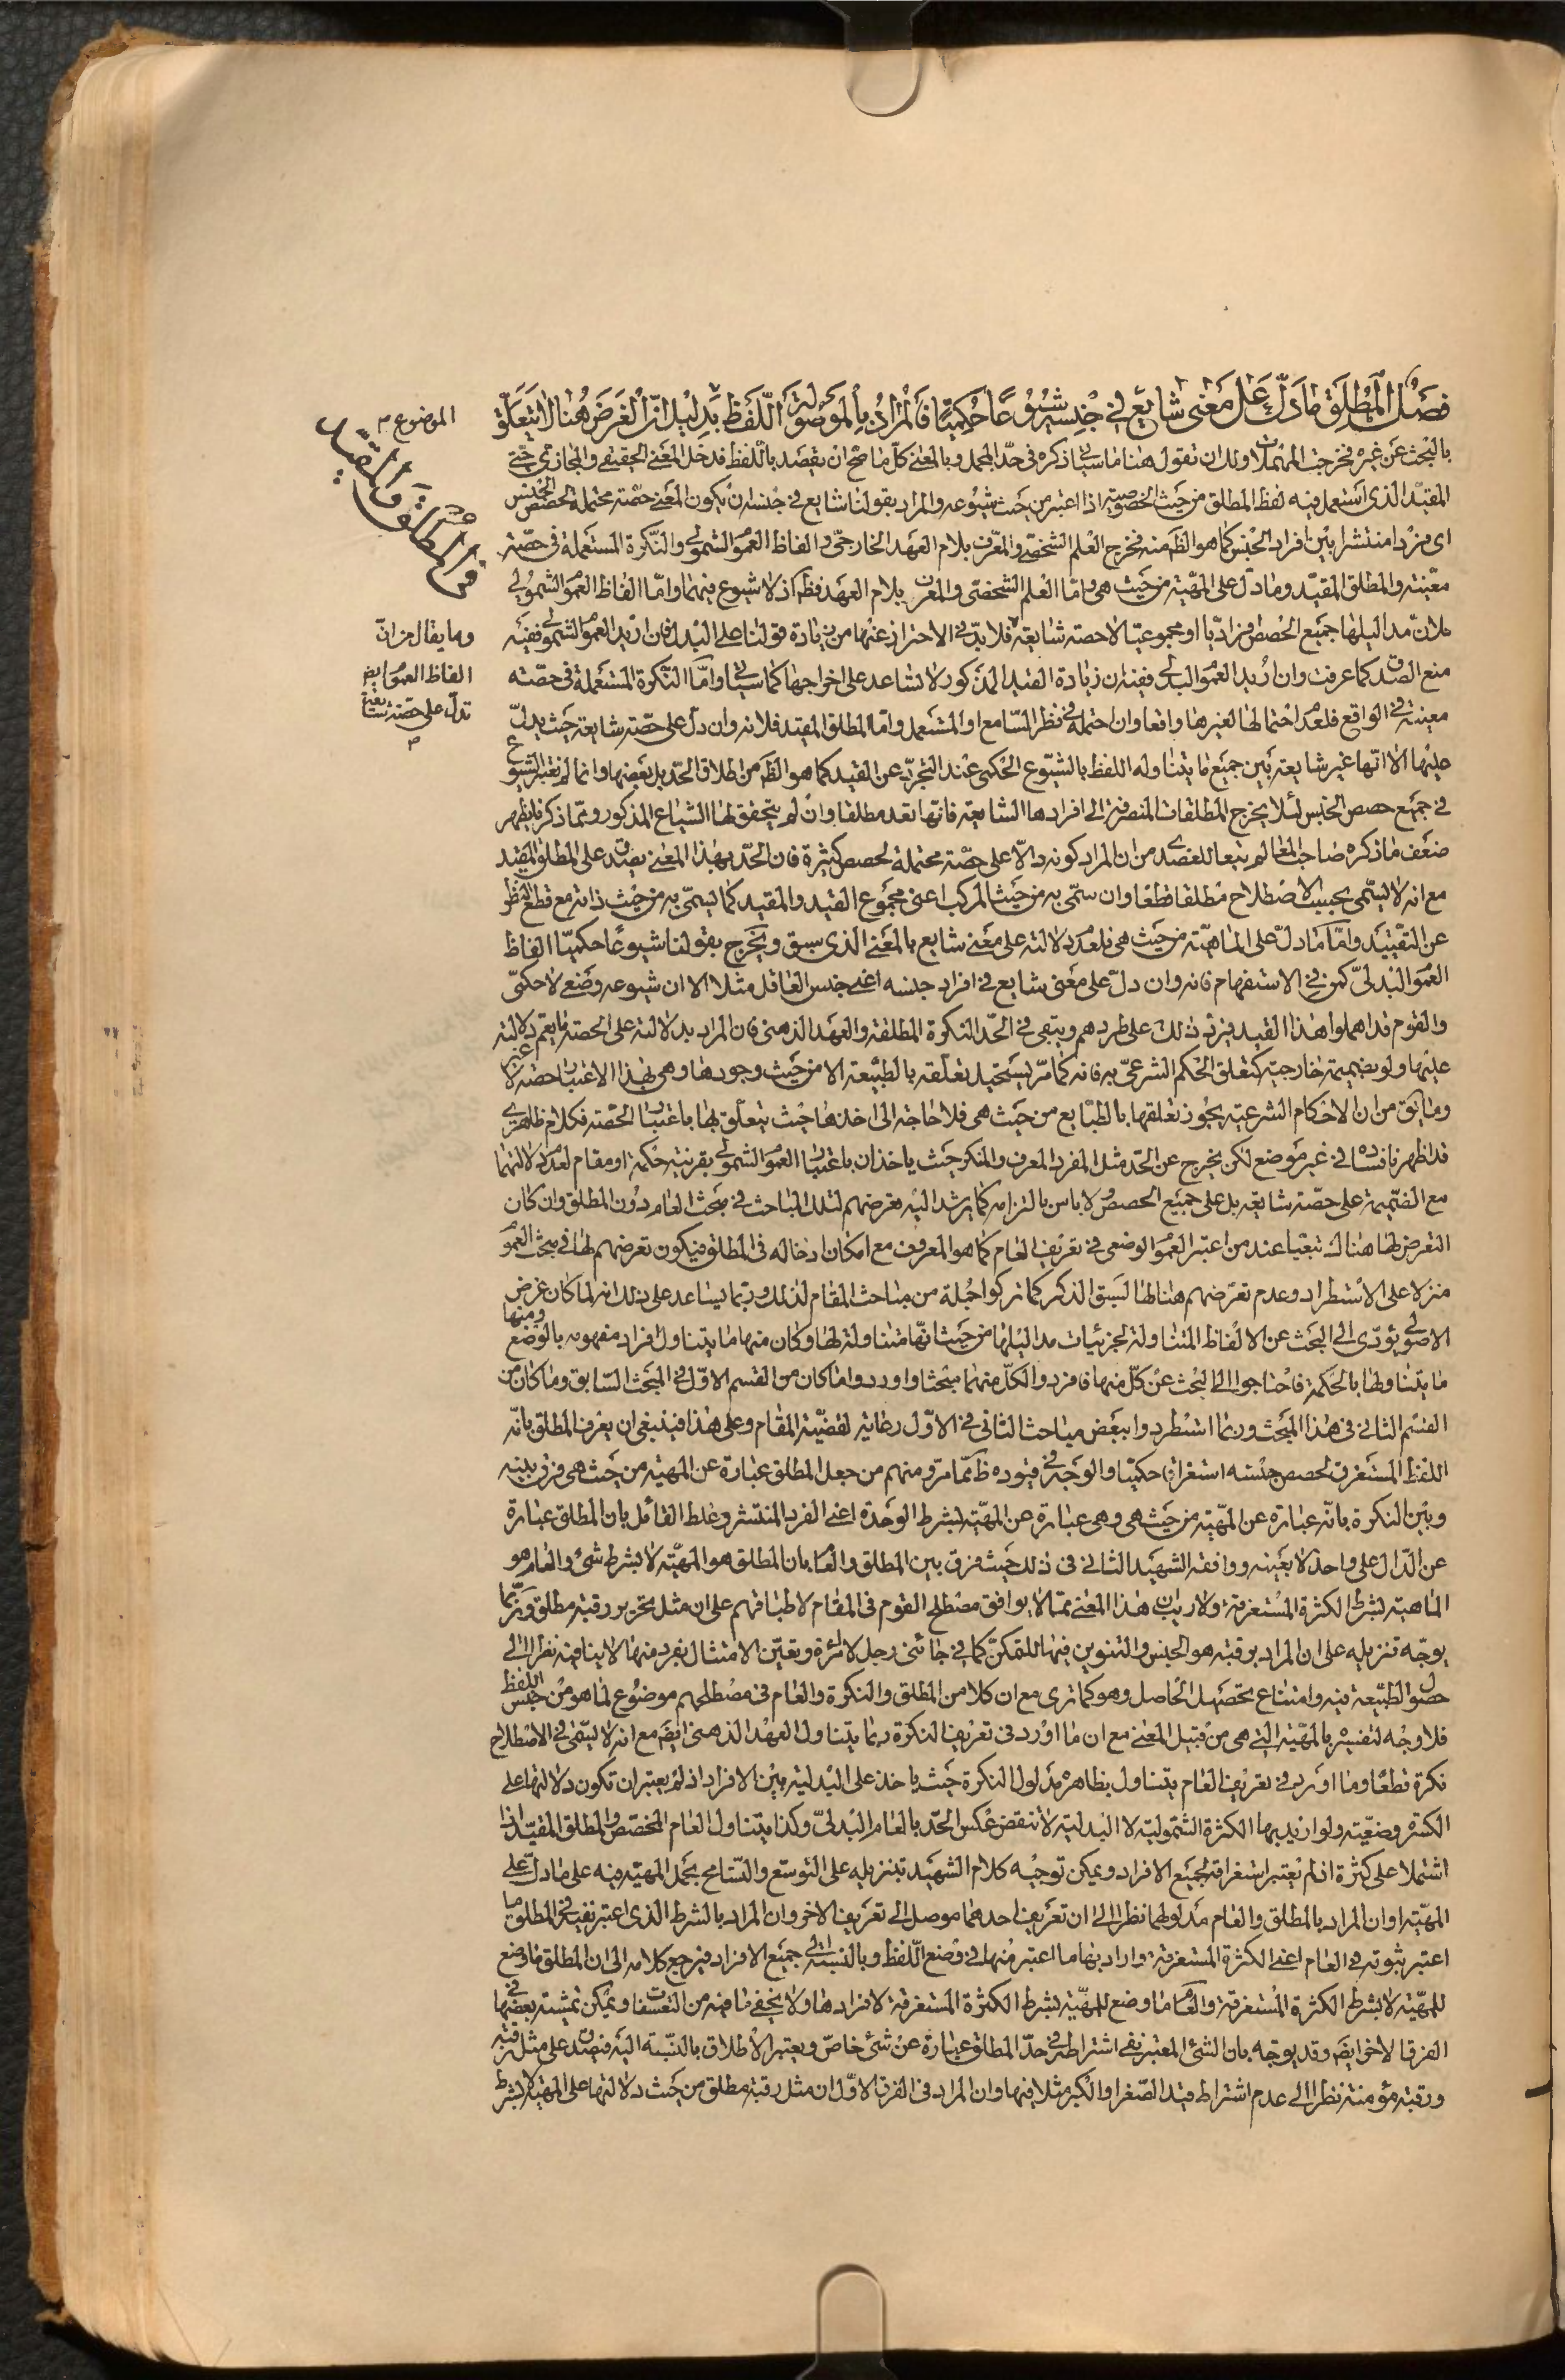 فصل المطلق ما دلّ على معنى شايع في جنسه شيوعا حكميّا فالمراد بالموصولة اللّفظ بدليل انّ الغرض هنا لا يتعلّق
بالبحث عن غيره فخرجت المهملات ولك ان تقول هنا ما سياتي ذكره في حدّ المجمل وبالمعنى كلّ ما صحّ ان يقصد باللّفظ فدخل المعنى الحقيقي والمجازي حتى
المقيّد الّذي استعمل فيه لفظ المطلق من حيث الخصوصيّة اذا اعتبر من حيث شيوعه والمراد بقولنا شايع في جنسه ان يكون المعنى حصّة محتملة لحصص الجنس
اي فردا منتشرا بين افراد الجنس كما هو الظ منه فخرج العلم الشخصّي والمعرّف بلام العهد الخارجيّ والفاظ العموم الشمولي والنّكرة المستعملة في حصّة
معيّنة والمطلق المقيّد وما دلّ على المهيّة من حيث هي امّا العلم الشخصّي والمعرف بلام العهد فظ اذ لا شيوع فيهما وامّا الفاظ العموم الشمولي
فلانّ مداليلها جميع الحصص افراديّا او مجموعيّا لا حصة شايعة فلا بدّ في الاحتراز عنها من زيادة قولنا على البدل فان اريد العموم الشمولي ففيه
منع الصّدق كما عرفت وان اريد العموم البدلي ففيه ان زيادة القيد المذكور لا تساعد على اخراجها كما سياتي وامّا النّكرة المستعملة في حصّة
معينة في الواقع فلعدم احتمالها لغيرها واقعا وان احتمله في نظر السّامع او المستعمل وامّا المطلق المقيد فلانه وان دلّ على حصّة شايعة حيث يدلّ
عليها الا انّها غير شايعة بين جميع ما يتناوله اللفظ بالشّيوع الحكمى عند التجرّد عن القيد كما هو الظ من اطلاق الحدّ بل بعضها وانما لم نعتبر الشيوع
في جميع حصص الجنس لئلّا يخرج المطلقات المنصرفة الى افرادها الشايعة فانّها تعد مطلقا وان لم يتحقق لها الشياع المذكور وممّا ذكرنا يظهر
ضعف ما ذكره صاحب المعالم تبعا للعضدى من ان المراد كونه دالّا على حصّة محتملة لحصص كثيرة فان الحدّ بهذا المعنى يصدق على المطلق المقيد
مع انه لا يسمّى بحسب الاصطلاح مطلقا قطعا وان سمّى به من حيث المركب اعنى مجموع القيد والمقيد كما يسمّى به من حيث ذاته مع قطع النّظر
عن التقييد وامّا ما دلّ على الماهيّة من حيث هي فلعدم دلالته على معنى شايع بالمعنى الذي سبق ويخرج بقولنا شيوعا حكميّا الفاظ
العموم البدليّ كمن في الاستفهام فانه وان دلّ على معنى شايع في افراد جنسه اعنى جنس العاقل مثلا الا ان شيوعه وضعي لا حكمى
والقوم قد اهملوا هذا القيد فيرد ذلك على طردهم ويبقى في الحدّ النكرة المطلقة والعهد الذهنى فان المراد بدلالته على الحصة ما يعم دلالته
عليها ولو بضميمة خارجيّة كتعلق الحكم الشرعيّ به فانه كما مرّ يستحيل تعلّقه بالطّبيعة الا من حيث وجودها وهي بهذا الاعتبار حصّة لا غير
وما يق من ان الاحكام الشرعيّة يجوز تعلقها بالطّبايع من حيث هي فلا حاجة الى اخذها حيث يتعلّق بها باعتبار الحصّة فكلام ظاهري
قد اظهرنا فساده في غير موضع لكن يخرج عن الحدّ مثل المفرد المعرف والمنكر حيث ياخذان باعتبار العموم الشمولي بقرينة حكمة او مقام لعدم دلالتهما
مع الضّميمة على حصّة شايعة بل على جميع الحصص ولا باس بالتزامه كما يرشد اليه تعرضهم لتلك المباحث في مبحث العام دون المطلق وان كان
التعرض لها هناك تبعيا عند من اعتبر العموم الوضعى في تعريف العام كما هو المعروف مع امكان ادخاله في المطلق فيكون تعرضهم لها في مبحث العموم
منزلا على الاستطراد وعدم تعرّضهم هنا لها لسبق الذكر كما تركوا جملة من مباحث المقام لذلك وربّما يساعد على ذلك انه لما كان غرض
الاصولي يؤدّي الى البحث عن الالفاظ المتناولة لجزئيات مداليلها من حيث انّها متناولة لها وكان منها ما يتناول افراد مفهومه بالوضع ومنها
ما يتناولها بالحكمة فاحتاجوا الى البحث عن كلّ منها فافردوا لكلّ منهما مبحثا واوردوا ما كان من القسم الاوّل في المبحث السّابق وما كان من
القسم الثاني في هذا المبحث وربما استطردوا ببعض مباحث الثاني في الاوّل رعاية لقضيّة المقام وعلى هذا فينبغي ان يعرف المطلق بانّه
اللفظ المستغرق لحصص جنسه استغراقا حكميّا والوجه في قيوده ظ ممّا مرّ ومنهم من جعل المطلق عبارة عن المهيّة من حيث هي وفرق بينه
وبين النكرة بانّه عبارة عن المهيّة من حيث هي وهي عبارة عن المهيّة بشرط الوحدة اعنى الفرد المنتشر وغلط القائل بان المطلق عبارة
عن الدّال على واحد لا بعينه ووافقه الشهيد الثاني في ذلك حيث فرق بين المطلق والعام بان المطلق هو المهيّة لا بشرط شئ والعام هو
الماهية بشرط الكثرة المستغرقة ولا ريب ان هذا المعنى ممّا لا يوافق مصطلح القوم في المقام لاطباقهم على ان مثل تحرير رقبة مطلق وربّما
يوجّه تنزيله على ان المراد برقبة هو الجنس والتنوين فيها للتمكّن كما في جائني رجل لا امرئة وتعيّن الامتثال بفرد منها لا ينافيه نظرا الى
حصول الطّبيعة فيه وامتناع تحصيل الحاصل وهو كما ترى مع ان كلا من المطلق والنكرة والعام في مصطلحهم موضوع لما هو من جنس اللفظ
فلا وجه لتفسيره بالمهيّة الّتي هي من قبيل المعنى مع ان ما اورد في تعريف النكرة ربما يتناول العهد الذهنى ايض مع انه لا يسمّى في الاصطلاح
نكرة قطعا وما اورد في تعريف العام يتناول بظاهره مدلول النكرة حيث ياخذ على البدلية بين الافراد اذ لم يعتبر ان تكون دلالتها على
الكثرة وضعيّة ولو اريد بها الكثرة الشموليّة لا البدليّة لانتقض عكس الحدّ بالعام البدليّ وكذا يتناول العام المخصّص والمطلق المقيّد اذا
اشتملا على كثرة اذ لم يعتبر استغراقه لجميع الافراد ويمكن توجيه كلام الشهيد بتنزيله على التوسّع والتّسامح بحمل المهيّة فيه على ما دلّ على
المهيّة او ان المراد بالمطلق والعام مدلولهما نظرا الى ان تعريف احدهما موصل الى تعريف الاخر وان المراد بالشرط الذي اعتبر نفيه في المطلق ما
اعتبر ثبوته في العام اعنى الكثرة المستغرقة واراد بها ما اعتبر منها في وضع اللّفظ وبالنسبة الى جميع الافراد فيرجع كلامه الى ان المطلق ما وضع
للمهيّة لا بشرط الكثرة المستغرقة والعام ما وضع للمهيّة بشرط الكثرة المستغرقة لافرادها ولا يخفى ما فيه من التعسّفات ويمكن تمشية بعضها في
الفرق الاخر ايض وقد يوجّه بان الشئ المعتبر نفي اشتراطه في حدّ المطلق عبارة عن شئ خاصّ ويعتبر الاطلاق بالنّسبة اليه فيصدق على مثل رقبة
ورقبة مؤمنة نظرا الى عدم اشتراط قيد الصّغر او الكبر مثلا فيها وان المراد في الفرق الاوّل ان مثل رقبة مطلق من حيث دلالتها على المهيّة لا بشرط
الموضوع م
في المطلق والمقيد
وما يقال من انّ
الفاظ العموم ايض
تدلّ على حصّة شايعة
م